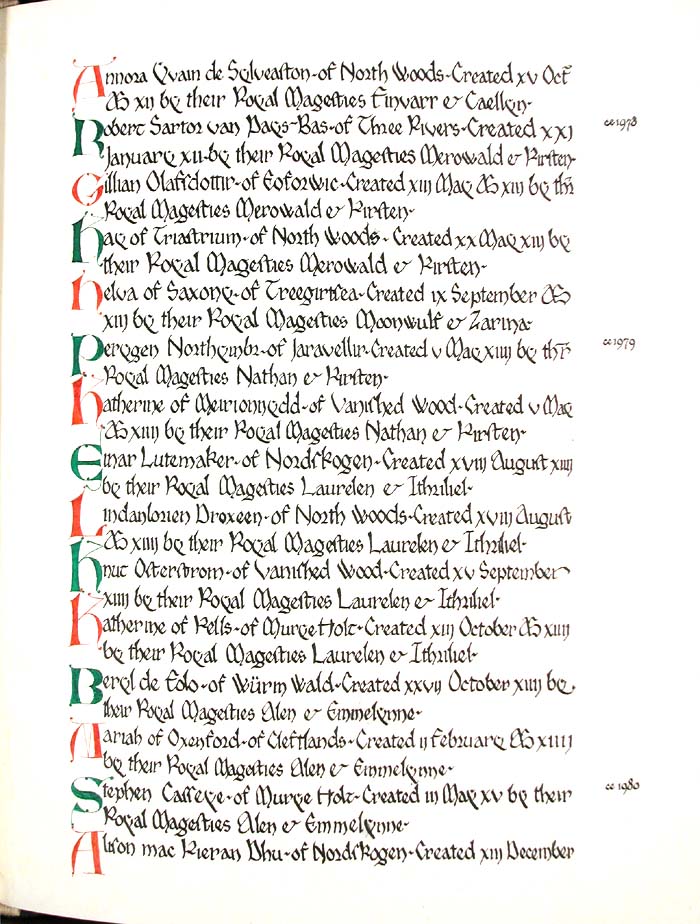 Annora Quain de Sylveaston-of North Woods-Created xv Oct
AS xii by their Royal Magesties Finvarr & Caellyn-
Robert Sartor van Pags-Bas-of Three Rivers-Created xxi
ce1978
January xii-by their Royal Magesties Merowald & Kirsten-
Gillian Olafsdottir-of Eoforwic-Created xiij May AS xiij by thr
Royal Magesties Merowald & Kirsten-
Hag of Triastrium-of North Woods-Created xx May xiij by
their Royal Magesties Merowald & Kirsten-
Helva of Saxony-of Treegirtsea-Created ix September AS
xiij by their Royal Magesties Moonwulf & Zarina-
Peregen Northymbr-of Jaravellir-Created v May xiiij by thr
ce1979
Royal Magesties Nathan & Kirsten-
Katherine of Meirionnydd-of Vanished Wood-Created v May
AS xiiij by their Royal Magesties Nathan & Kirsten-
Einar Lutemaker-of Nordskogen-Created xviij August xiiij
by their Royal Magesties Laurelen & Ithriliel-
Lindanlorien Droxeen-of North Woods-Created xviij August
AS xiiij by their Royal Magesties Laurelen & Ithriliel-
Knut Osterstrom-of Vanished Wood-Created xv September
xiiij by their Royal Magesties Laurelen & Ithriliel-
Katherine of Kells-of Murge Holt-Created xiij October AS xiiij
by their Royal Magesties Laurelen & Ithriliel-
Beryl de Folo-of Würm Wald-Created xxvij October xiiij by
their Royal Magesties Alen & Emmelynne-
Mariah of Oxenford-of Cleftlands-Created ij February AS xiiij
by their Royal Magesties Alen & Emmelynne-
Stephen Casseye-of Murge Holt-Created iij May xv by their
ce 1980
Royal Magesties Alen & Emmelynne-
Alison mac Kieran Dhu-of Nordskogen-Created xiij December